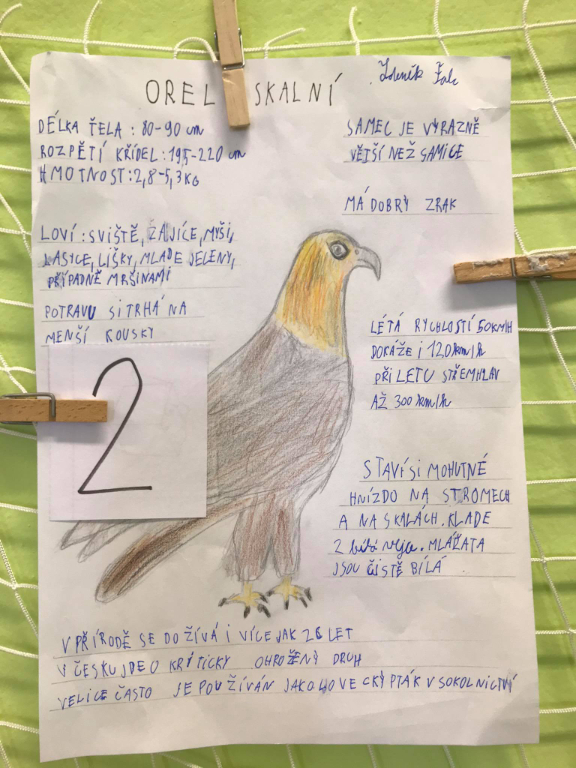 Zdeněk
OREL SKALNÍ
DÉLKA TĚLA : 80-90 cm
ROZPĚTÍ KŘÍDEL : 195-220 cm
HMOTNOST : 2,8-5,3 KG
SAMEC JE VÝRAZNĚ
VĚTŠÍ NEŽ SAMICE
MÁ DOBRÝ ZRAK
LOVÍ : SVIŠTĚ, ZAJÍCE, MYŠI,
LASYCE, LIŠKY, MLADE JELENY,
PŘÍPADNĚ MRŠINAMI
POTRAVU SI TRHÁ NA
MENŠÍ KOUSKY
2
LÉTÁ RYCHLOSTÍ 50KM/H
DOKÁŽE I 120km/h
PŘI LETU STŘEMHLAV
AŽ 300 km/h
STAVÍ SI MOHUTNÉ
HNÍZDO NA STROMECH
A NA SKALÁCH. KLADE
2 bílá vejce. MLÁĎATA
JSOU ČISTĚ BÍLÁ.
V PŘÍRODĚ SE DOŽÍVÁ I VÍCE JAK 26 LET
V ČESKU JDE O KRITICKY OHROŽENÝ DRUH
VELICE ČASTO JE POUŽÍVÁN JAKO LOVECKÝ PTÁK V SOKOLNICTVÍ